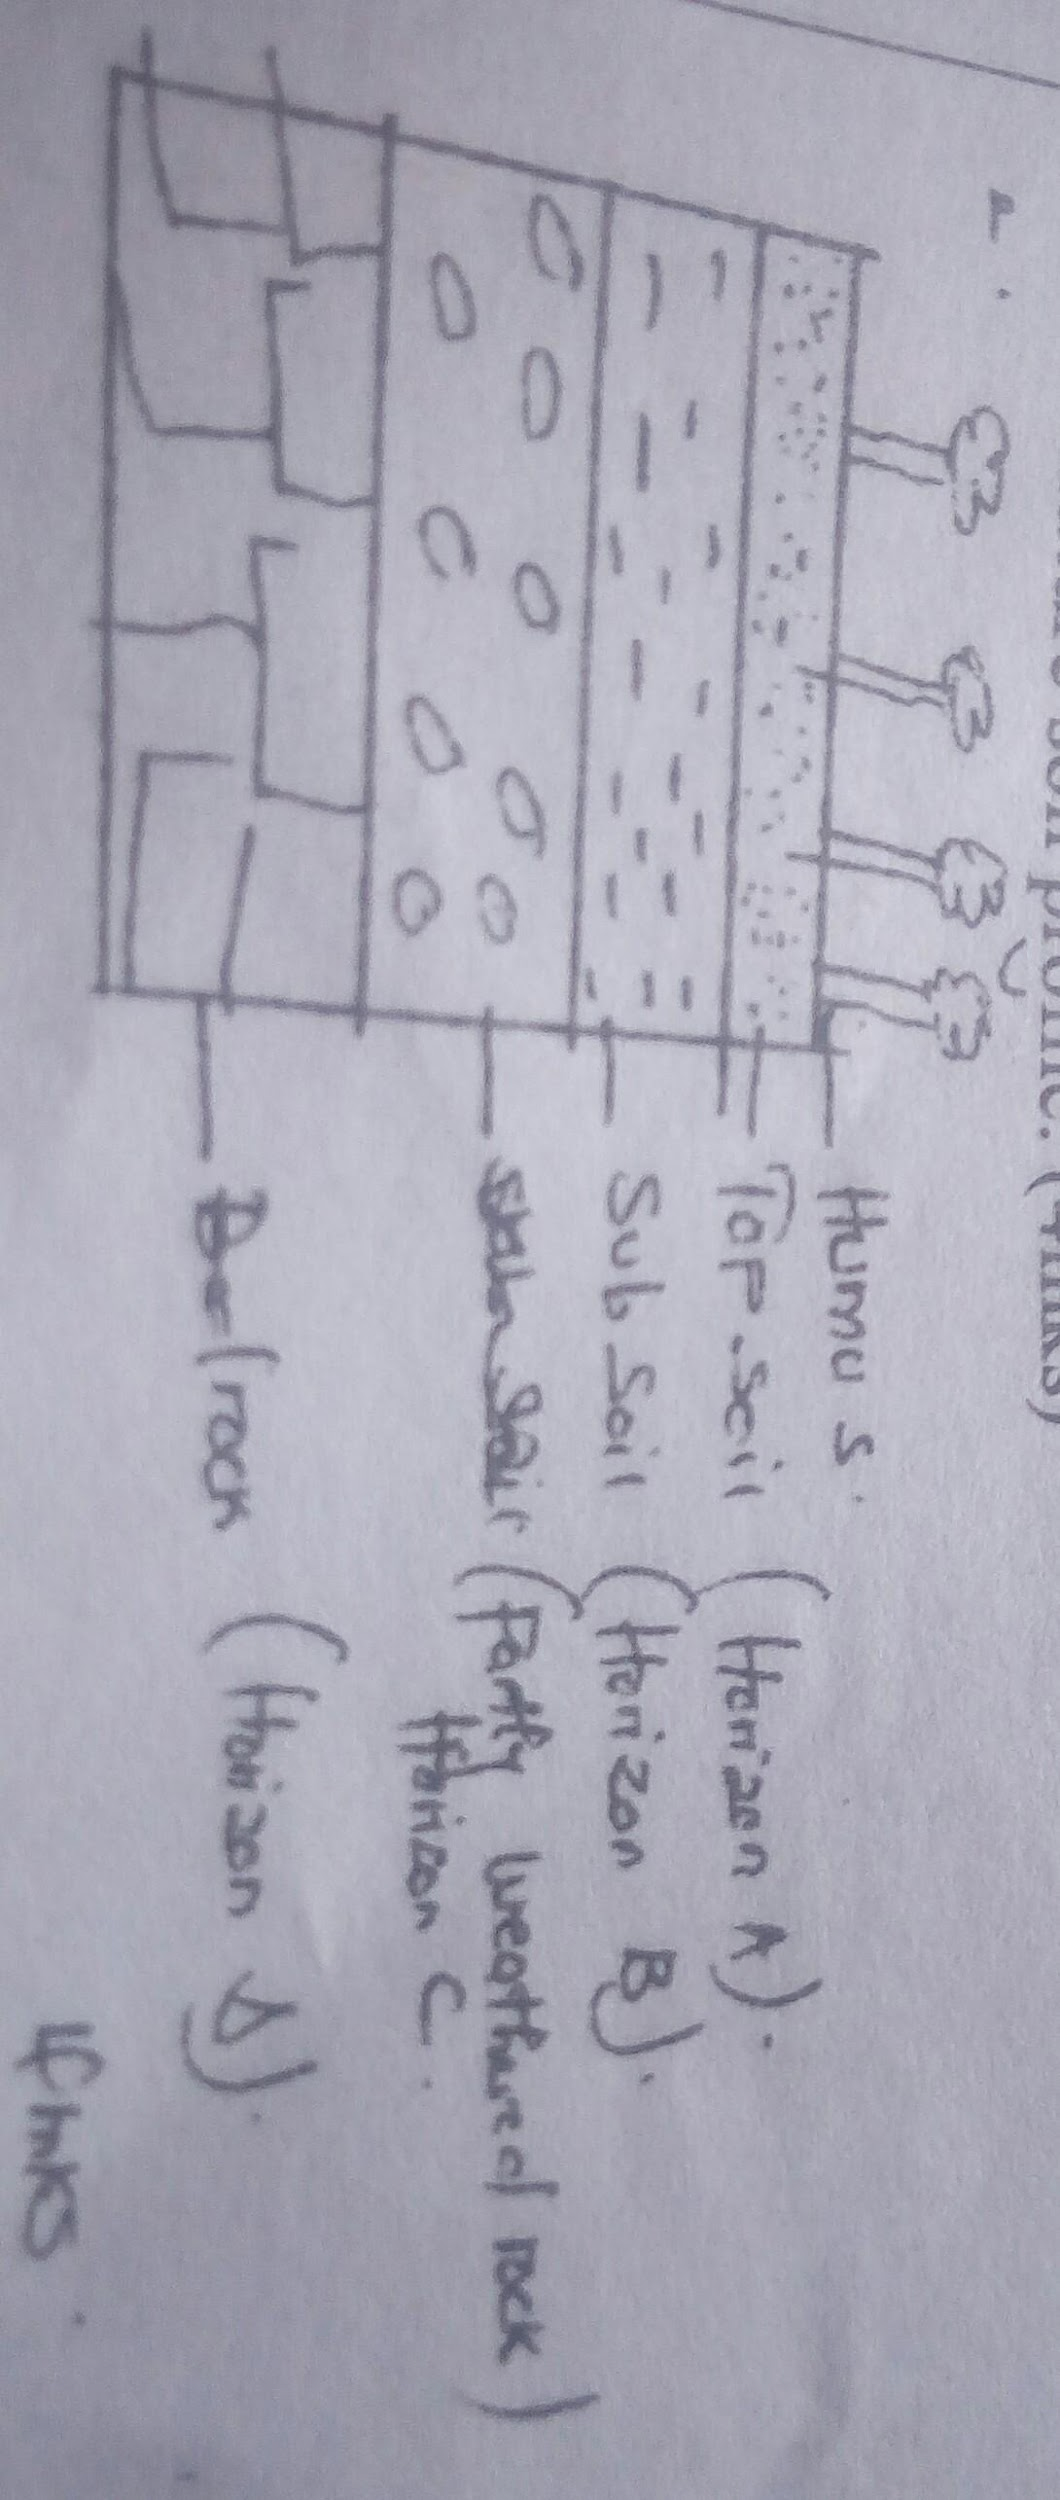 soil profile. (4mks)
2.
Humus.
Top soil (Horizon A).
Sub Soil (Horizon B).
(Partly weathered rock)
Horizon C.
rock (Horizon D).
4mks.